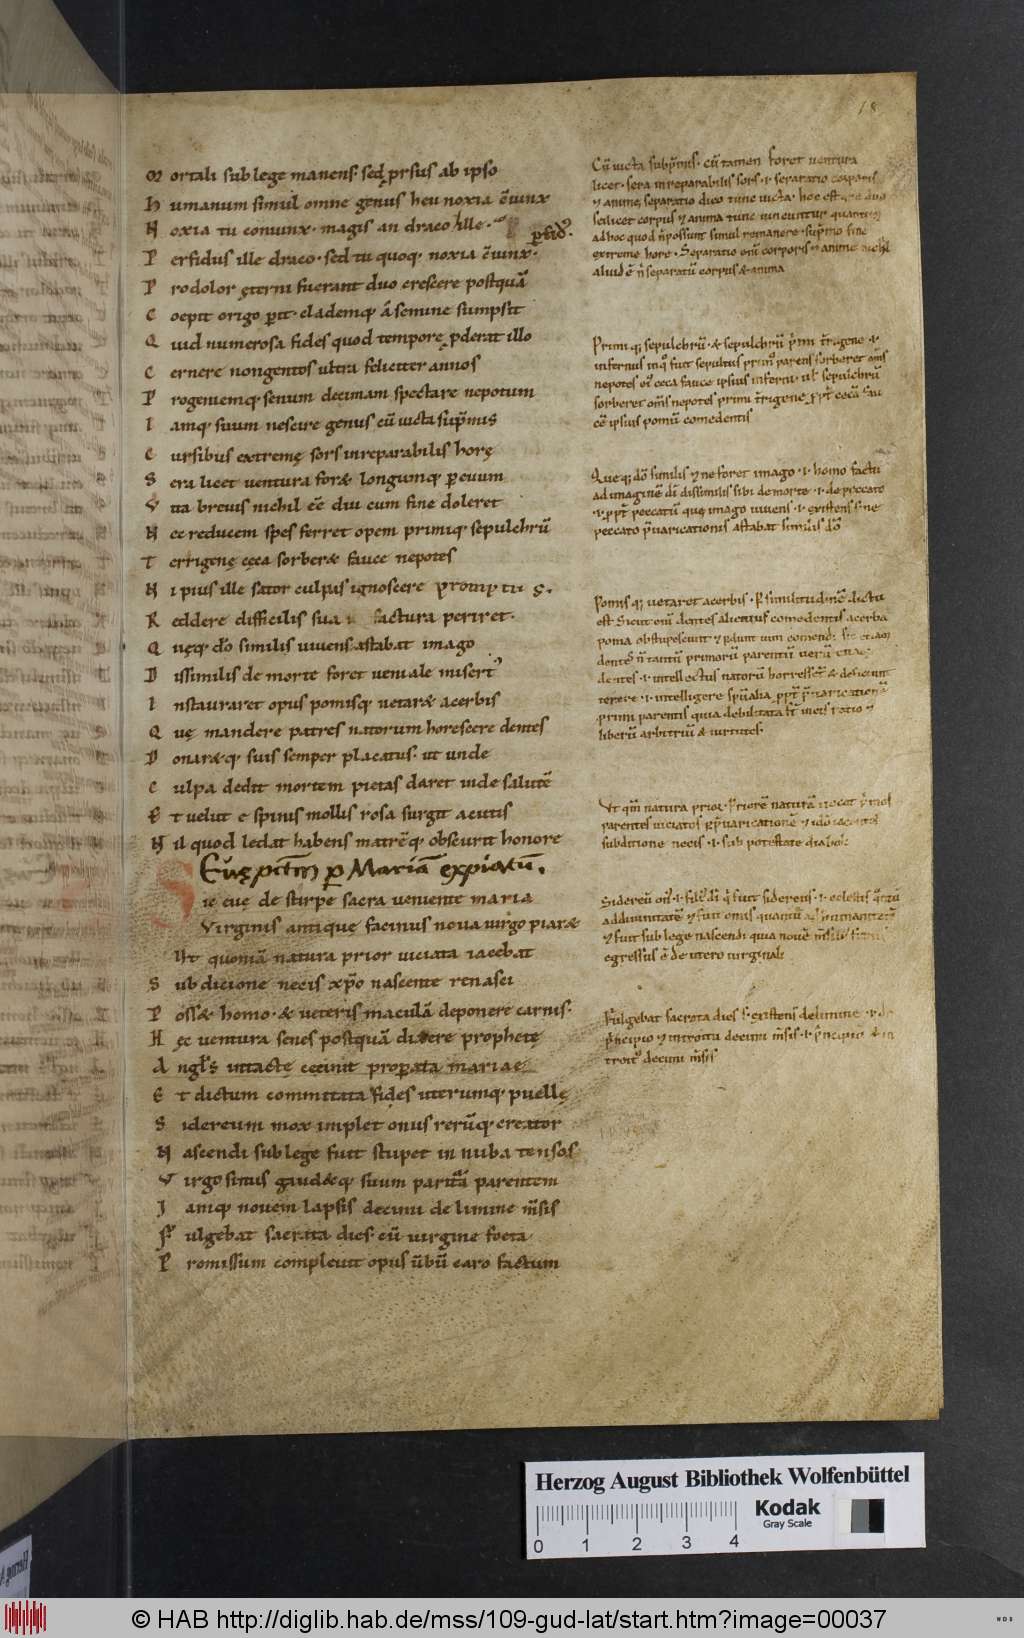 18
M ortali sub lege manens sed ꝓrsus ab ipso
H umanum simul omne genus heu noxia c̄iunx
N oxia tu coniunx· magis an draco ille·
ꝑfid᷒·
P erfidus ille draco· sed tu quoq· noxia c̄iunx·
P ro dolor ęterni fuerant duo crescere postquā
C oepit origo ꝑit· clademq; ā semine sumpsit
Q uid numerosa fides quod temporę ꝓderat illo
C ernere nongentos ultra feliciter annos
P rogeniemq; senum decimam spectare nepotum
I amq; suum nescire genus cū uicta sup̄mis
C ursibus extremę sors inreparabilis horę
S era licet uentura for& longumq; ꝑ euum
V ita breuis nichil ēe diu cum fine doleret
N ec reducem spes ferret opem primiq; sepulchrū
T errigenę cęca sorber& fauce nepotes
N i pius ille sator culpas ignoscere promptus
R eddere difficilis sua factura periret·
Q uęq; dō similis uiuens astabat imago
D issimilis de morte foret ueniale misert᷒
I nstauraret opus pomisq; uetar& acerbis
Q uę mandere patres natorum horescere dentes
D onar&q; suis semper placatus· ut unde
C ulpa dedit mortem pietas daret inde salutē
E t uelut e spinis mollis rosa surgit acutis
N il quod ledat habens matrēq; obscurit honore
Euę pctm̄ ꝑ Mariā expiatū·
S ic euę de stirpe sacra ueniente maria
Virginis antiquę facinus noua uirgo piar&
Ut quoniā natura prior uiciata iacebat
S ub dicione necis xp̄o nascente renasci
P oss& homo· & ueteris maculā deponere carnis·
H ęc uentura senes postquā dixere prophetę
A ngl̄s intactę cecinit ꝓperata mariae
E t dictum commitata fides uterumq; puellę
S idereum mox implet onus rerūq; creator
N ascendi sub lege fuit stupet innuba tensos
V irgo sinus gaud&q; suum paritā parentem
I amq; nouem lapsis decimi de limine m̄sis
F ulgebat sacrata dies cū uirgine foeta
P romissum compleuit opus ūbū caro factum
Cū uicta sup̄mis· cū tamen foret uentura
licet· sera inreparabilis sors· i· separatio corporis
⁊ animę separatio dico tunc uicta· hoc est quę duo
scilicet corpus ⁊ anima tunc iunguntur quantū
ad hoc quod n̄ possunt simul remanere· sup̄mo fine
extremę horę· Separatio om̄ corporis ⁊ animę nichil
aliud ē n̄ separatū corpus & anima
Primiq; sepulchrū· & sepulchrū p̄mi t̄rigenę· i·
infernus in quo fuit sepultus prim᷒ parens sorberet om̄s
nepotes ceca fauce ipsius inferni· ul̄ sepulchrū
sorberet om̄s nepotes primi t̄rigenę ꝓpt̄ cęcā fau
cē ipsius pomū comedentis
Queq; dō similis ⁊ ne foret imago· i· homo factus
ad imaginē dī dissimilis sibi de morte· i· de peccato
i· ꝓpt̄ peccatū quę imago uiuens· i· existens sine
peccato p̄uaricationis astabat similis dō
Pomisq; uetaret acerbis· ꝑ similitudinē dictū
est Sicut enī dentes alicuius comedentis acerba
poma obstupescunt ⁊ ꝑdunt uim comendi sic etiam
dentes n̄ tantū primorū parentū uerū
dentes· i· intellectus natorū horresc̄t & desinunt
terere· i· intelligere spūalia ꝓpt̄ p̄uaricationē
primi parentis quia debilitata ē in eis ratio ⁊
liberū arbitriū & uirtutes·
Ut qm̄ natura prior· Priorē naturā uocat p̄mos
parentes uiciatos ꝑ p̄uaricationē ⁊ ideo iacentes
subditione necis· i· sub potestate diaboli
Sidereū on᷒· i· fili᷒ dī q̄ fuit sidereus· i· celestis quantū
ad diuinitatē ⁊ fuit onus quantū ad humanitatē
⁊ fuit sub lege nascendi quia nouē m̄sibus
egressus ē de utero uirginali
Fulgebat sacrata dies· existens de limine· i· de
p̄ncipio ⁊ introitu decimi m̄sis· i· p̄ncipio & in
troit᷒ decimi m̄sis
Herzog August Bibliothek Wolfenbüttel
Kodak
Gray Scale
0 1 2 3 4
© HAB http://diglib.hab.de/mss/109-gud-lat/start.htm?image=00037